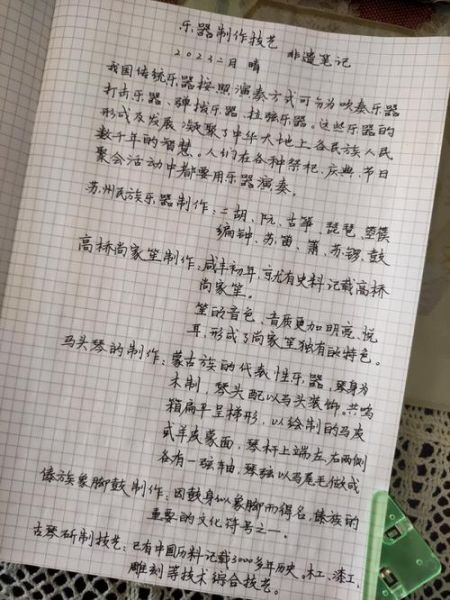 乐器制作技艺 非遗笔记
2023二月 晴
我国传统乐器按照演奏方式可分为吹奏乐器
打击乐器、弹拨乐器、拉弦乐器。这些乐器的
形成及发展凝聚了中华大地上各民族人民
数千年的智慧。人们在各种祭祀、庆典、节日
聚会活动中都要用乐器演奏。
苏州民族乐器制作:二胡、阮、古筝、琵琶、箜篌
编钟、苏笛、箫、苏锣、鼓
高桥尚家笙制作:咸丰初年,京尤有史料记载高桥
尚家笙。
笙的音色、音质更加明亮、悦
耳,形成了尚家笙独有的特色。
马头琴的制作:蒙古族的代表性乐器,琴身为
木制,琴头配以马头装饰。共鸣
箱扁平呈梯形,以绘制的马皮
或羊皮蒙面,琴杆上端左、右两侧
各有一弦轴,琴弦以马尾毛做成
傣族象脚鼓制作:因鼓身似象脚而得名。傣族的
重要的文化符号之一。
古琴斫制技艺:已有中国历料记载3000多年历史。木工、漆工、
雕刻等技术综合技艺。